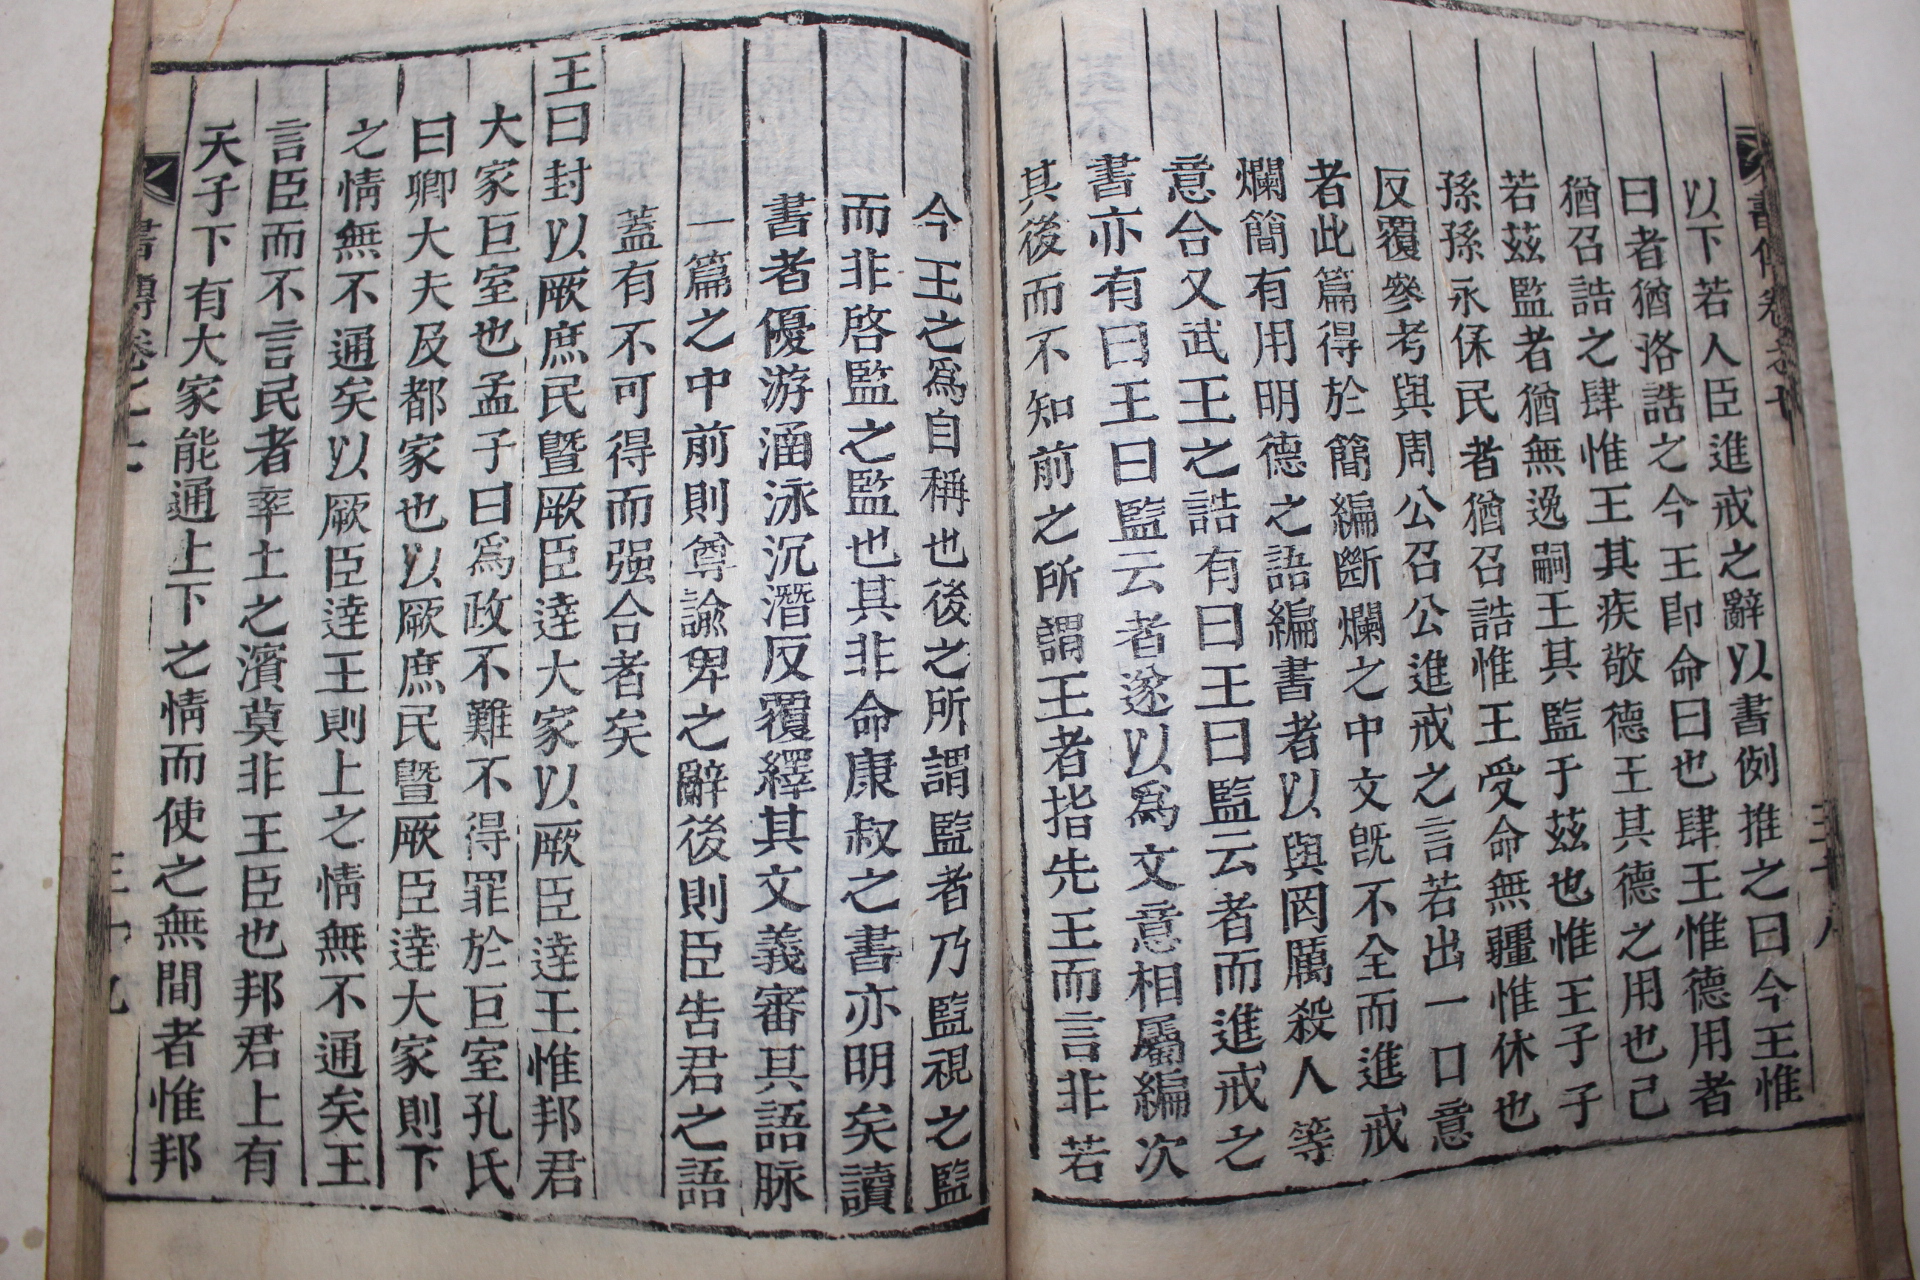 以下若人臣進戒之辭以書例推之曰今王惟
曰者猶洛誥之今王即命曰也肆王惟德用者
猶召誥之肆惟王其疾敬德王其德之用也己
若茲監者猶無逸嗣王其監于茲也惟王子子
孫孫永保民者猶召誥惟王受命無疆惟休也
反覆參考與周公召公進戒之言若出一口意
者此篇得於簡編斷爛之中文旣不全而進戒
爛簡有用明德之語編書者以與罔厲殺人等
意合又武王之誥有曰王曰監云者而進戒之
書亦有曰王曰監云者遂以爲文意相屬編次
其後而不知前之所謂王者指先王而言非若
今王之爲自稱也後之所謂監者乃監視之監
而非啓監之監也其非命康叔之書亦明矣讀
書者優游涵泳沉潛反覆繹其文義審其語脉
一篇之中前則尊諭卑之辭後則臣告君之語
蓋有不可得而强合者矣
王曰封以厥庶民曁厥臣達大家以厥臣達王惟邦君
大家巨室也孟子曰爲政不難不得罪於巨室孔氏
曰卿大夫及都家也以厥庶民曁厥臣達大家則下
之情無不通矣以厥臣達王則上之情無不通矣王
言臣而不言民者率土之濱莫非王臣也邦君上有
天子下有大家能通上下之情而使之無間者惟邦
書傳卷之七
三十九